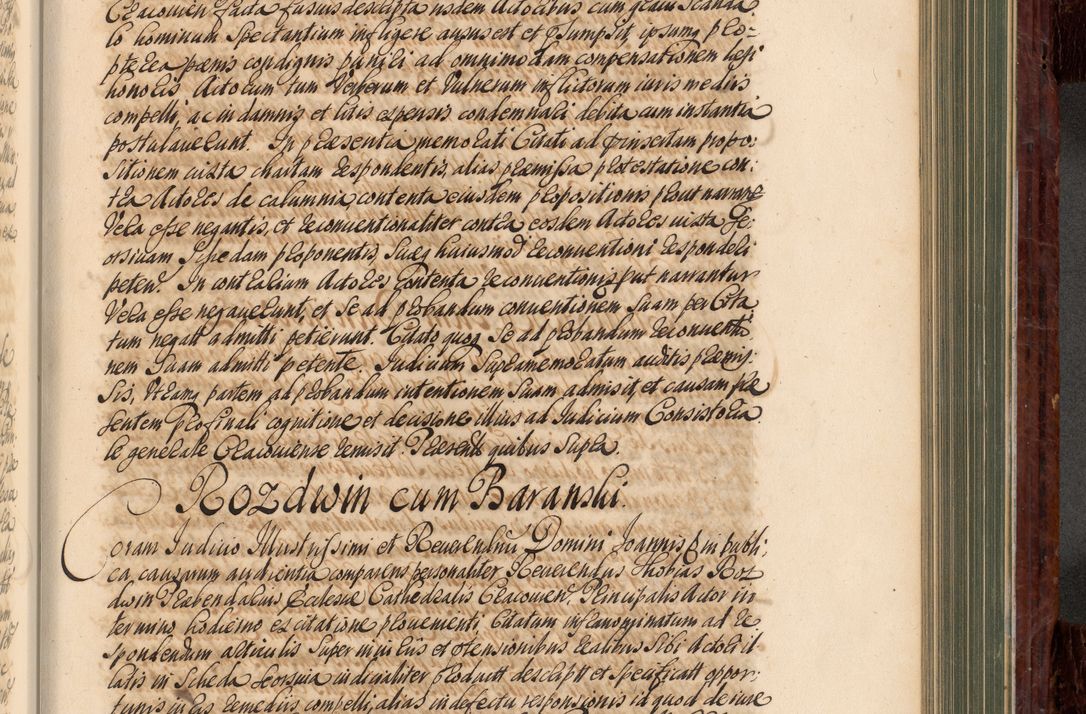 Cracovien facta fusius descripta iisdem Actoribus cum gravi Scanda
lo hominum Spectantium infligere ausus est et p̄sumpsit, ipsumq̃ pro=
pterea pænis condignis puniri ad omnimodam compensationem læsi
honoris Actorum tum Verberum et Vulnerum inflictorum iuris mediis
compelli, ac in damnis et litis expensis condemnari debita cum instantia
postulaverunt. In præsentia memorati Citati ad p̄insertam propo=
sitionem iuxta chartam respondentis, alias præmissa protestatione con=
tra Actores de calumnia contenta eiusdem propositionis prout narrant̃
Vera esse negantis, et reconventionaliter contra eosdem Actores iuxta se=
orsivam Scedam proponentis, suæq̃ huiusmodi reconventioni responderi
peten̄. In contrarium Actores Contenta reconventionis put narrantur
Vera esse negaverunt, et se ad probandum conventionem suam per Cita
tum negatā admitti petierunt. Citatoq̃ quoq̃ se ad probandum reconventio
nem suam admitti petente. Iudicium Supramemoratum auditis præmis=
sis, utramq̃ partem ad probandum intentionem suam admisit, et causam præ
sentem pro finali cognitione et decisione illius ad Iudicium Consistoria
le generale Cracoviense remisit. Præsentt quibus supra.
Rozdwin cum Baranski.
Coram Iudicio Illustrissimi et Reverendissimi Domini Joannis p̄ in publi=
ca causarum audientia comparens personaliter Reverendus Thobias Roz
dwin Præbendarius Ecclesiæ Cathedralis Cracovien. Principalis Actor in
termino hodierno ex citatione provenienti Citatum infranominatum ad re
spondendum articulis super iniuriis et offensionibus realibus sibi Actori il
latis in Scheda seorsiva iudicialiter productt descriptt et specificatt oppor=
tunis iuris remediis compelli, alias in defectu responsionis id quod de iure